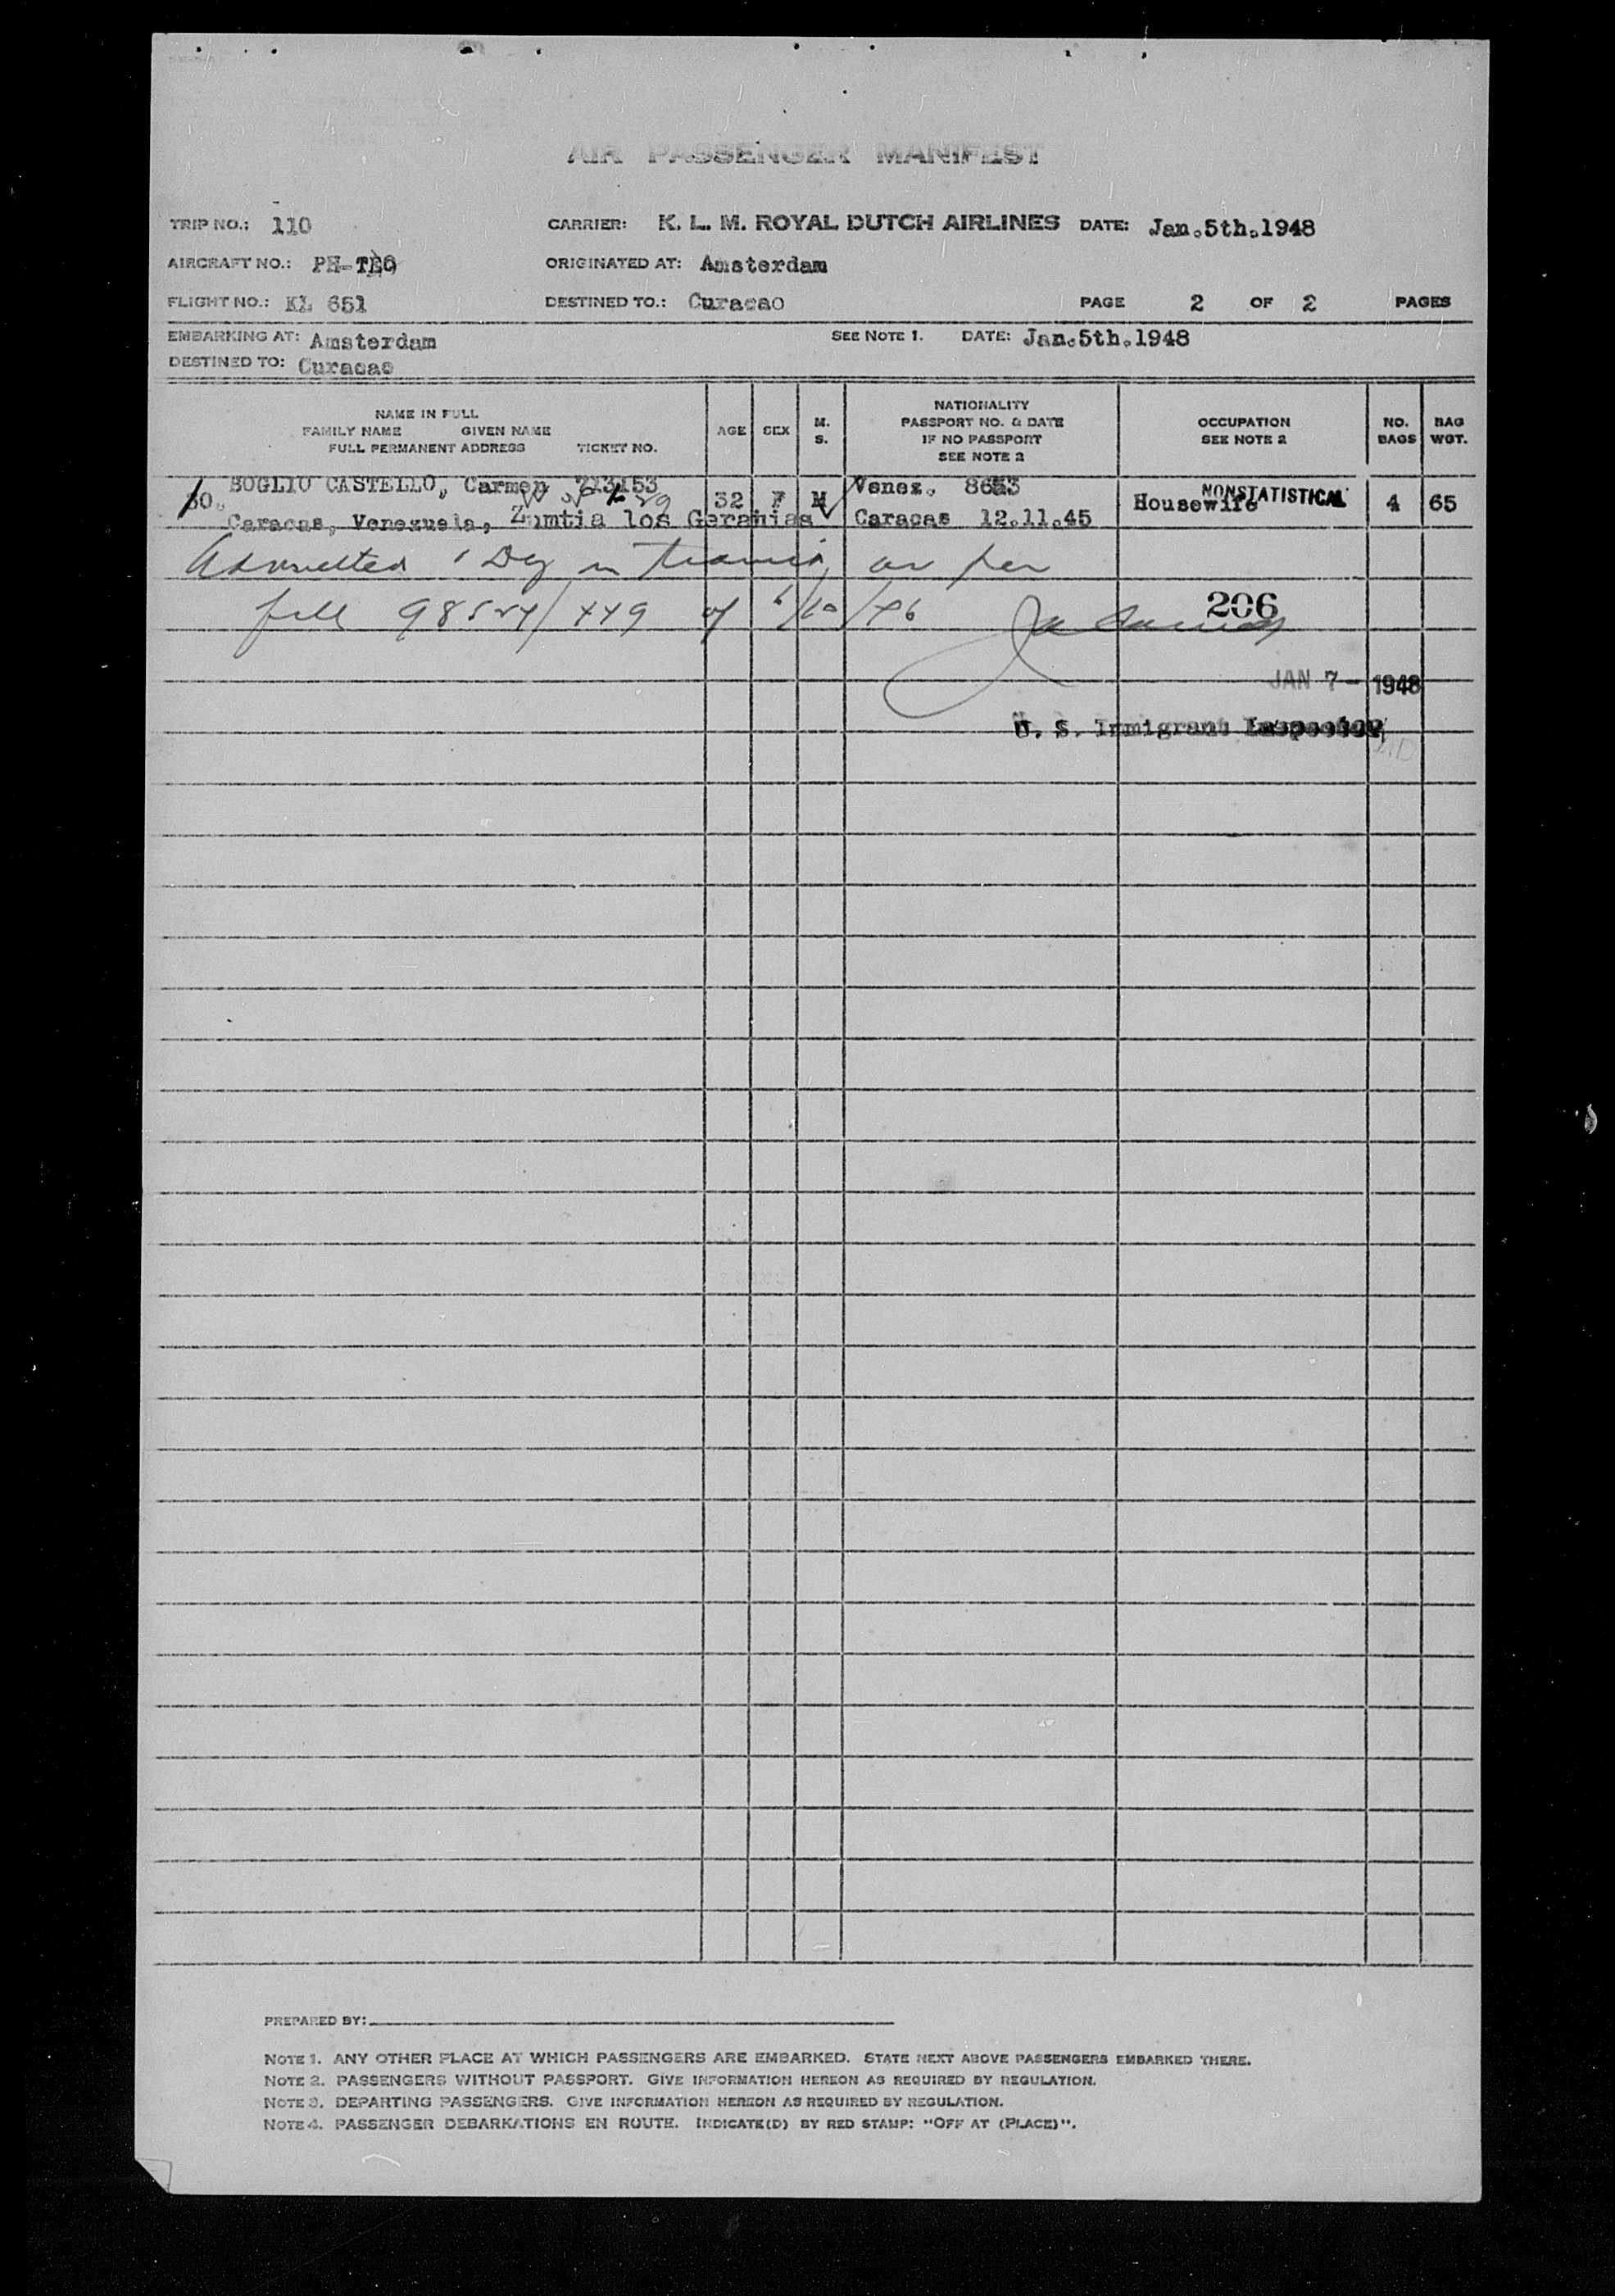 AIR PASSENGER MANIFEST
TRIP NO.: 110 CARRIER: K. L. M. ROYAL DUTCH AIRLINES DATE: Jan.5th.1948
AIRCRAFT NO.: PH- ORIGINATED AT: Amsterdam
FLIGHT NO.: KL 651 DESTINED TO.: Curacao PAGE 2 OF 2 PAGES
EMBARKING AT: Amsterdam SEE NOTE 1. DATE: Jan.5th.1948
DESTINED TO: Curacao
NAME IN FULL
FAMILY NAME GIVEN NAME
FULL PERMANENT ADDRESS TICKET NO.
AGE SEX M. S.
NATIONALITY
PASSPORT NO. & DATE
IF NO PASSPORT
SEE NOTE 2
OCCUPATION
SEE NOTE 2
NO. BAGS
BAG WGT.
30. BOGLIO CASTELLO, Carmen 713153 32 F M Venez. Housewife NONSTATISTICAL 4 65
Caracas, Venezuela, los Geranias Caracas 12.11.45
Admitted 1 Day in transit, as per
file of 6/10/46 206
JAN 7- 1948
U. S. Immigrant Inspector
PREPARED BY:
NOTE 1. ANY OTHER PLACE AT WHICH PASSENGERS ARE EMBARKED. STATE NEXT ABOVE PASSENGERS EMBARKED THERE.
NOTE 2. PASSENGERS WITHOUT PASSPORT. GIVE INFORMATION HEREON AS REQUIRED BY REGULATION.
NOTE 3. DEPARTING PASSENGERS. GIVE INFORMATION HEREON AS REQUIRED BY REGULATION.
NOTE 4. PASSENGER DEBARKATIONS EN ROUTE. INDICATE(D) BY RED STAMP: "OFF AT (PLACE)".